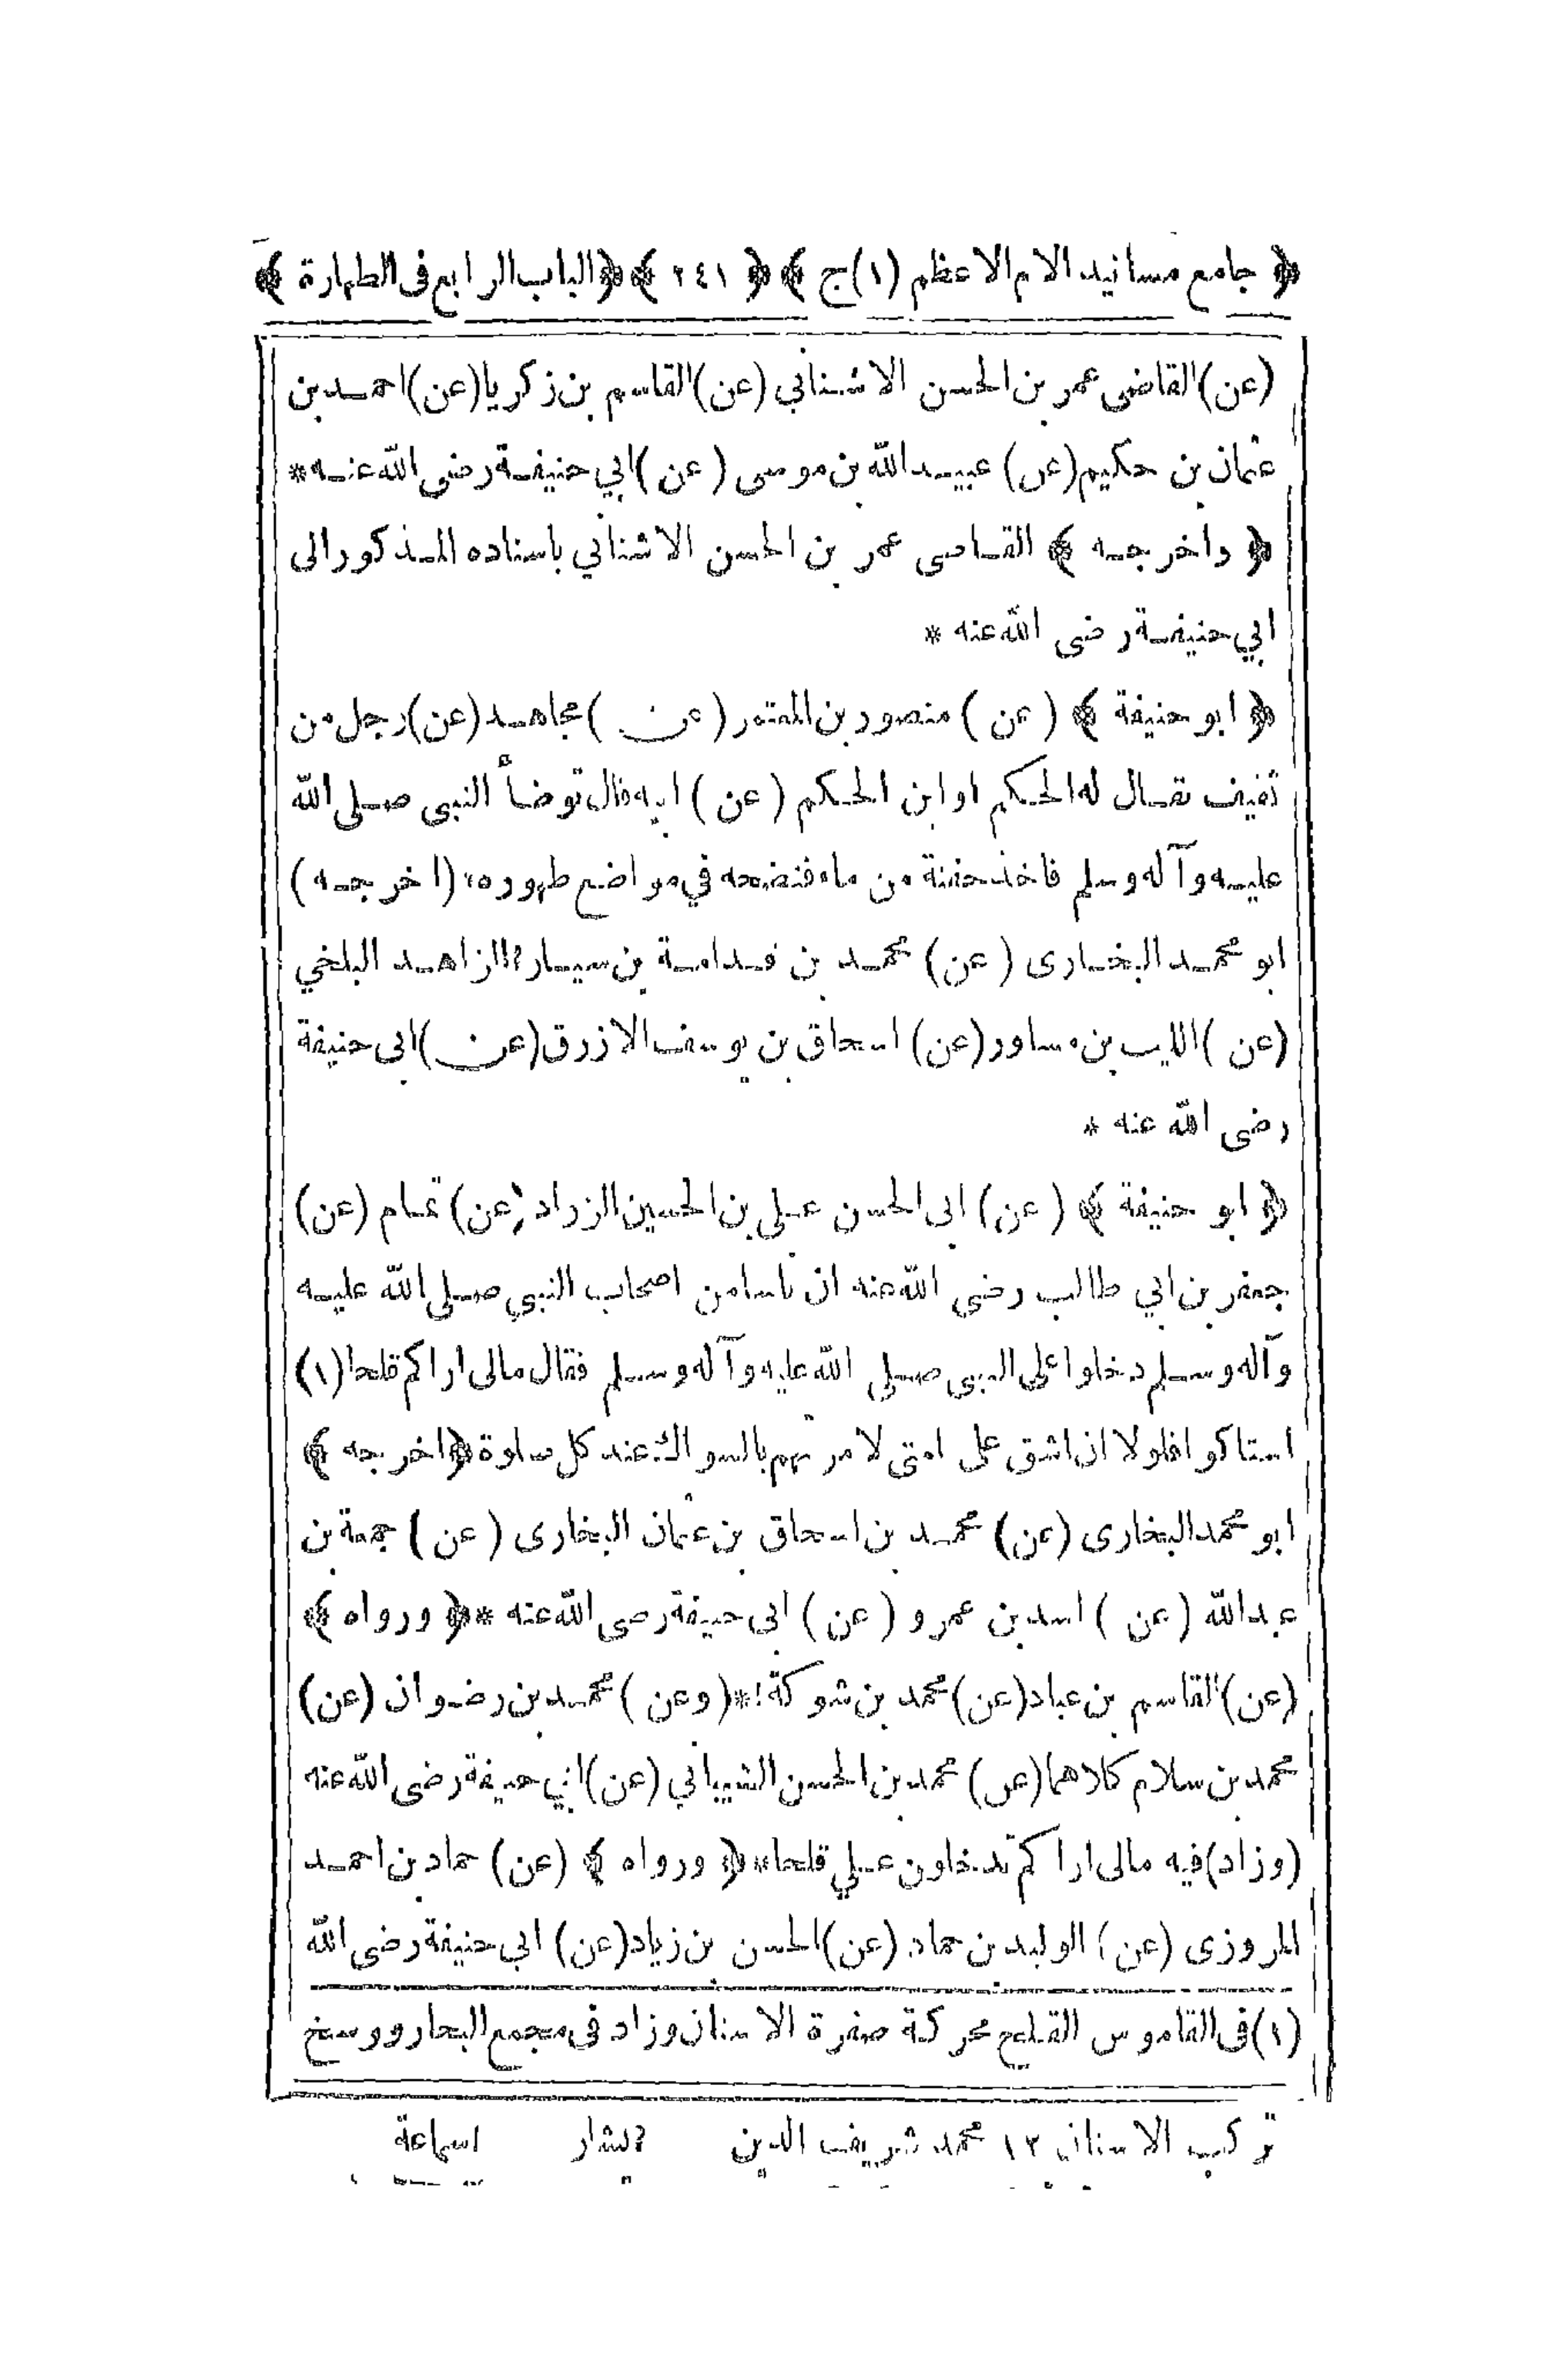 ﴿ جامع مسانيد الام الاعظم (١) ج ﴾ ﴿ ٢٤١ ﴾ ﴿ الباب الرابع فى الطهارة ﴾
(عن) القاضى عمر بن الحسن الاشنانى (عن) القاسم بن زكريا (عن) احمد بن
عثمان بن حكيم (عن) عبيد الله بن موسى (عن) ابي حنيفة رضى الله عنه *
﴿ واخرجه ﴾ القاضى عمر بن الحسن الاشنانى باسناده المذكور الى
ابي حنيفة رضى الله عنه *
﴿ ابو حنيفة ﴾ (عن) منصور بن المعتمر (عن) مجاهد (عن) رجل من
ثقيف يقال له الحكم او ابن الحكم (عن) ابيه قال توضأ النبى صلى الله
عليه وآله وسلم فاخذ حفنة من ماء فنضحه في مواضع طهوره * (اخرجه)
ابو محمد البخارى (عن) محمد بن قدامة بن سيار ؟ الزاهد البلخي
(عن) الليب بن مساور (عن) اسحاق بن يوسف الازرق (عن) ابى حنيفة
رضى الله عنه *
﴿ ابو حنيفة ﴾ (عن) ابى الحسن على بن الحسين الزراد (عن) تمام (عن)
جعفر بن ابي طالب رضى الله عنه ان ناسا من اصحاب النبي صلى الله عليه
وآله وسلم دخلوا على النبى صلى الله عليه وآله وسلم فقال مالى اراكم قلحا (١)
استاكوا فلولا ان اشق على امتى لامرتهم بالسواك عند كل صلوة ﴿ اخرجه ﴾
ابو محمد البخارى (عن) محمد بن اسحاق بن عثمان البخارى (عن) جمعة بن
عبد الله (عن) اسد بن عمرو (عن) ابى حنيفة رضى الله عنه * ﴿ ورواه ﴾
(عن) القاسم بن عباد (عن) محمد بن شوكة ! * (وعن) محمد بن رضوان (عن)
محمد بن سلام كلاهما (عن) محمد بن الحسن الشيباني (عن) ابي حنيفة رضى الله عنه
(وزاد) فيه مالى اراكم تدخلون علي قلحا * ﴿ ورواه ﴾ (عن) حماد بن احمد
المروزى (عن) الوليد بن حماد (عن) الحسن بن زياد (عن) ابي حنيفة رضى الله
(١) فى القاموس القلح محركة صفرة الاسنان وزاد فى مجمع البحار ووسخ
تركب الاسنان ١٢ محمد شريف الدين ؟ بشار